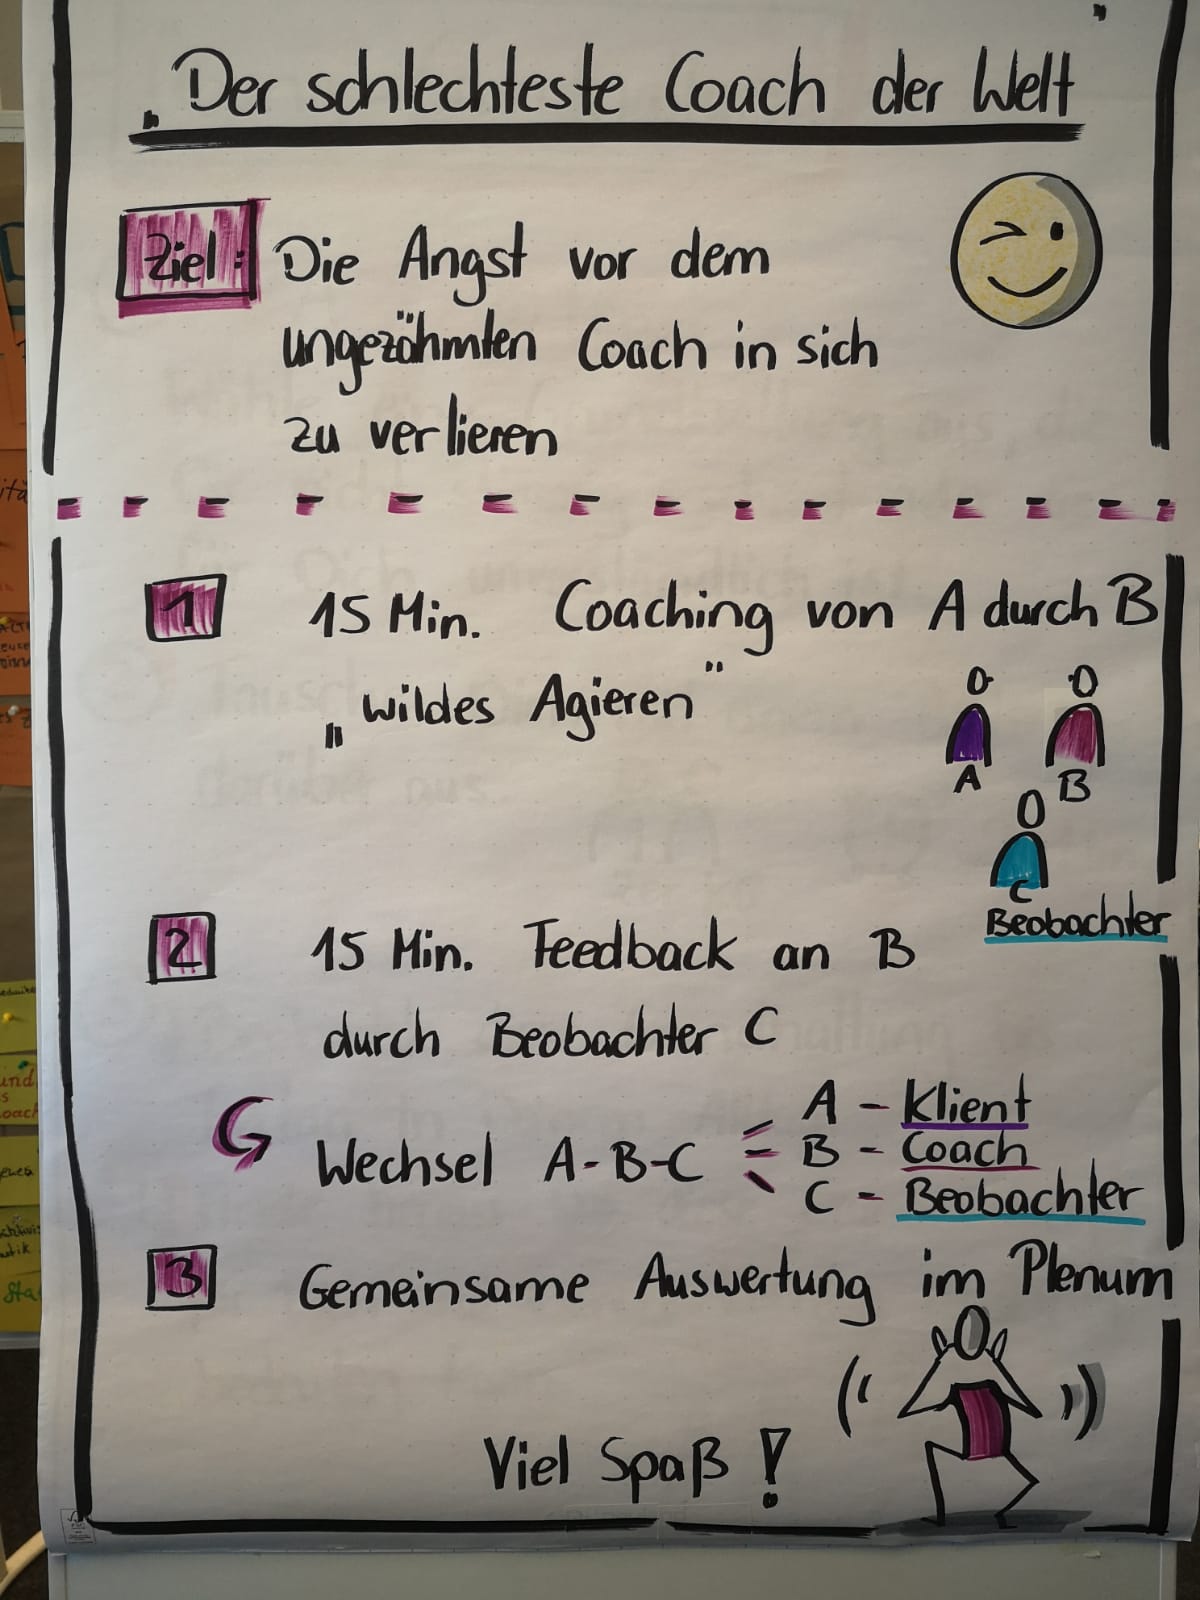 „Der schlechteste Coach der Welt"
Ziel: Die Angst vor dem
ungezähmten Coach in sich
zu verlieren
1 15 Min. Coaching von A durch B
„wildes Agieren"
A B
C
Beobachter
2 15 Min. Feedback an B
durch Beobachter C
A - Klient
Wechsel A-B-C B - Coach
C - Beobachter
3 Gemeinsame Auswertung im Plenum
Viel Spaß!